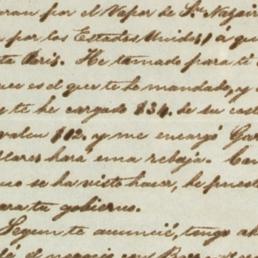 por el Vapor de Sn. Nazair
por los Estados Unidos) á qu
Paris. He tomado para ti
es el que te he mandado, y
te he cargado 134, de su cost
valen 182, y me encargó
hara una rebaja.
se ha visto hacer, he puest
tu gobierno.
Segun te anuncié, tengo
el negocio con